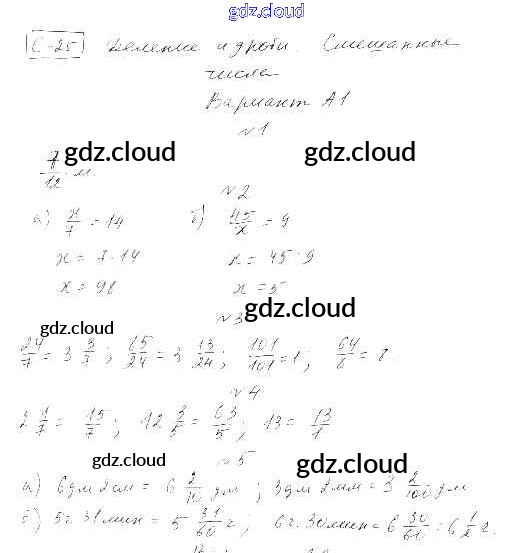 gdz.cloud
С-25 Деление и дроби. Смешанные
числа
Вариант А1
№1
7/12 м.
gdz.cloud gdz.cloud
№2
а) x/7 = 14 б) 45/x = 9
x = 7·14 x = 45:9
x = 98 x = 5
gdz.cloud
№3
gdz.cloud
24/7 = 3 3/7; 85/24 = 3 13/24; 101/101 = 1; 64/8 = 8.
№4
2 1/7 = 15/7; 12 3/5 = 63/5; 13 = 13/1
gdz.cloud gdz.cloud
№5
а) 6дм 2см = 6 2/10 дм; 3дм 2мм = 3 2/100 дм
б) 5ч 31мин = 5 31/60 ч; 6ч 30мин = 6 30/60 = 6 1/2 ч.
gdz.cloud gdz.cloud